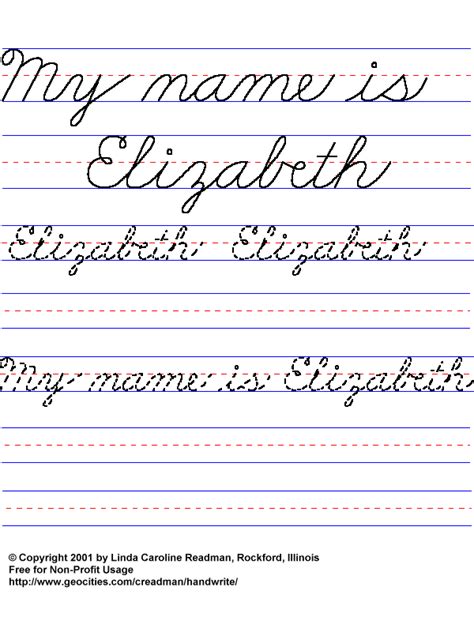 My name is
Elizabeth
Elizabeth Elizabeth
My name is Elizabeth
© Copyright 2001 by Linda Caroline Readman, Rockford, Illinois
Free for Non-Profit Usage
http://www.geocities.com/creadman/handwrite/